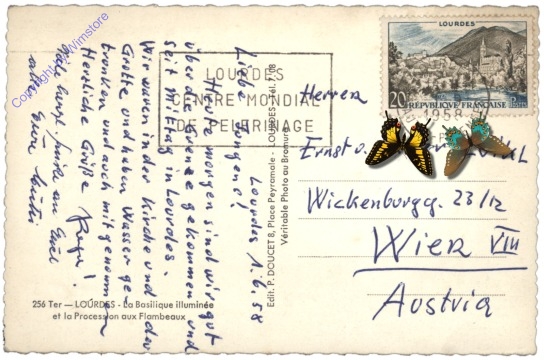 Copyright by Wimstore
LOURDES
20F
REPVBLIQUE FRANÇAISE
LOURDES
CENTRE MONDIAL
DE PELERINAGE
1958
Lourdes 1.6.58
Heute morgen sind wir gut
über die Grenze gekommen und
seit Mittag in Lourdes.
Wir waren in der Kirche und in der
Grotte und haben Wasser ge-
trunken und auch mitgenommen
Herzliche Grüße
Edit. P. DOUCET 8, Place Peyramale - LOURDES - Tél. 7/08
Véritable Photo au Bromure
Herren
Ernst
Wickenburgg. 23/12
Wien VIII
Austria
256 Ter — LOURDES - La Basilique illuminée
et la Procession aux Flambeaux